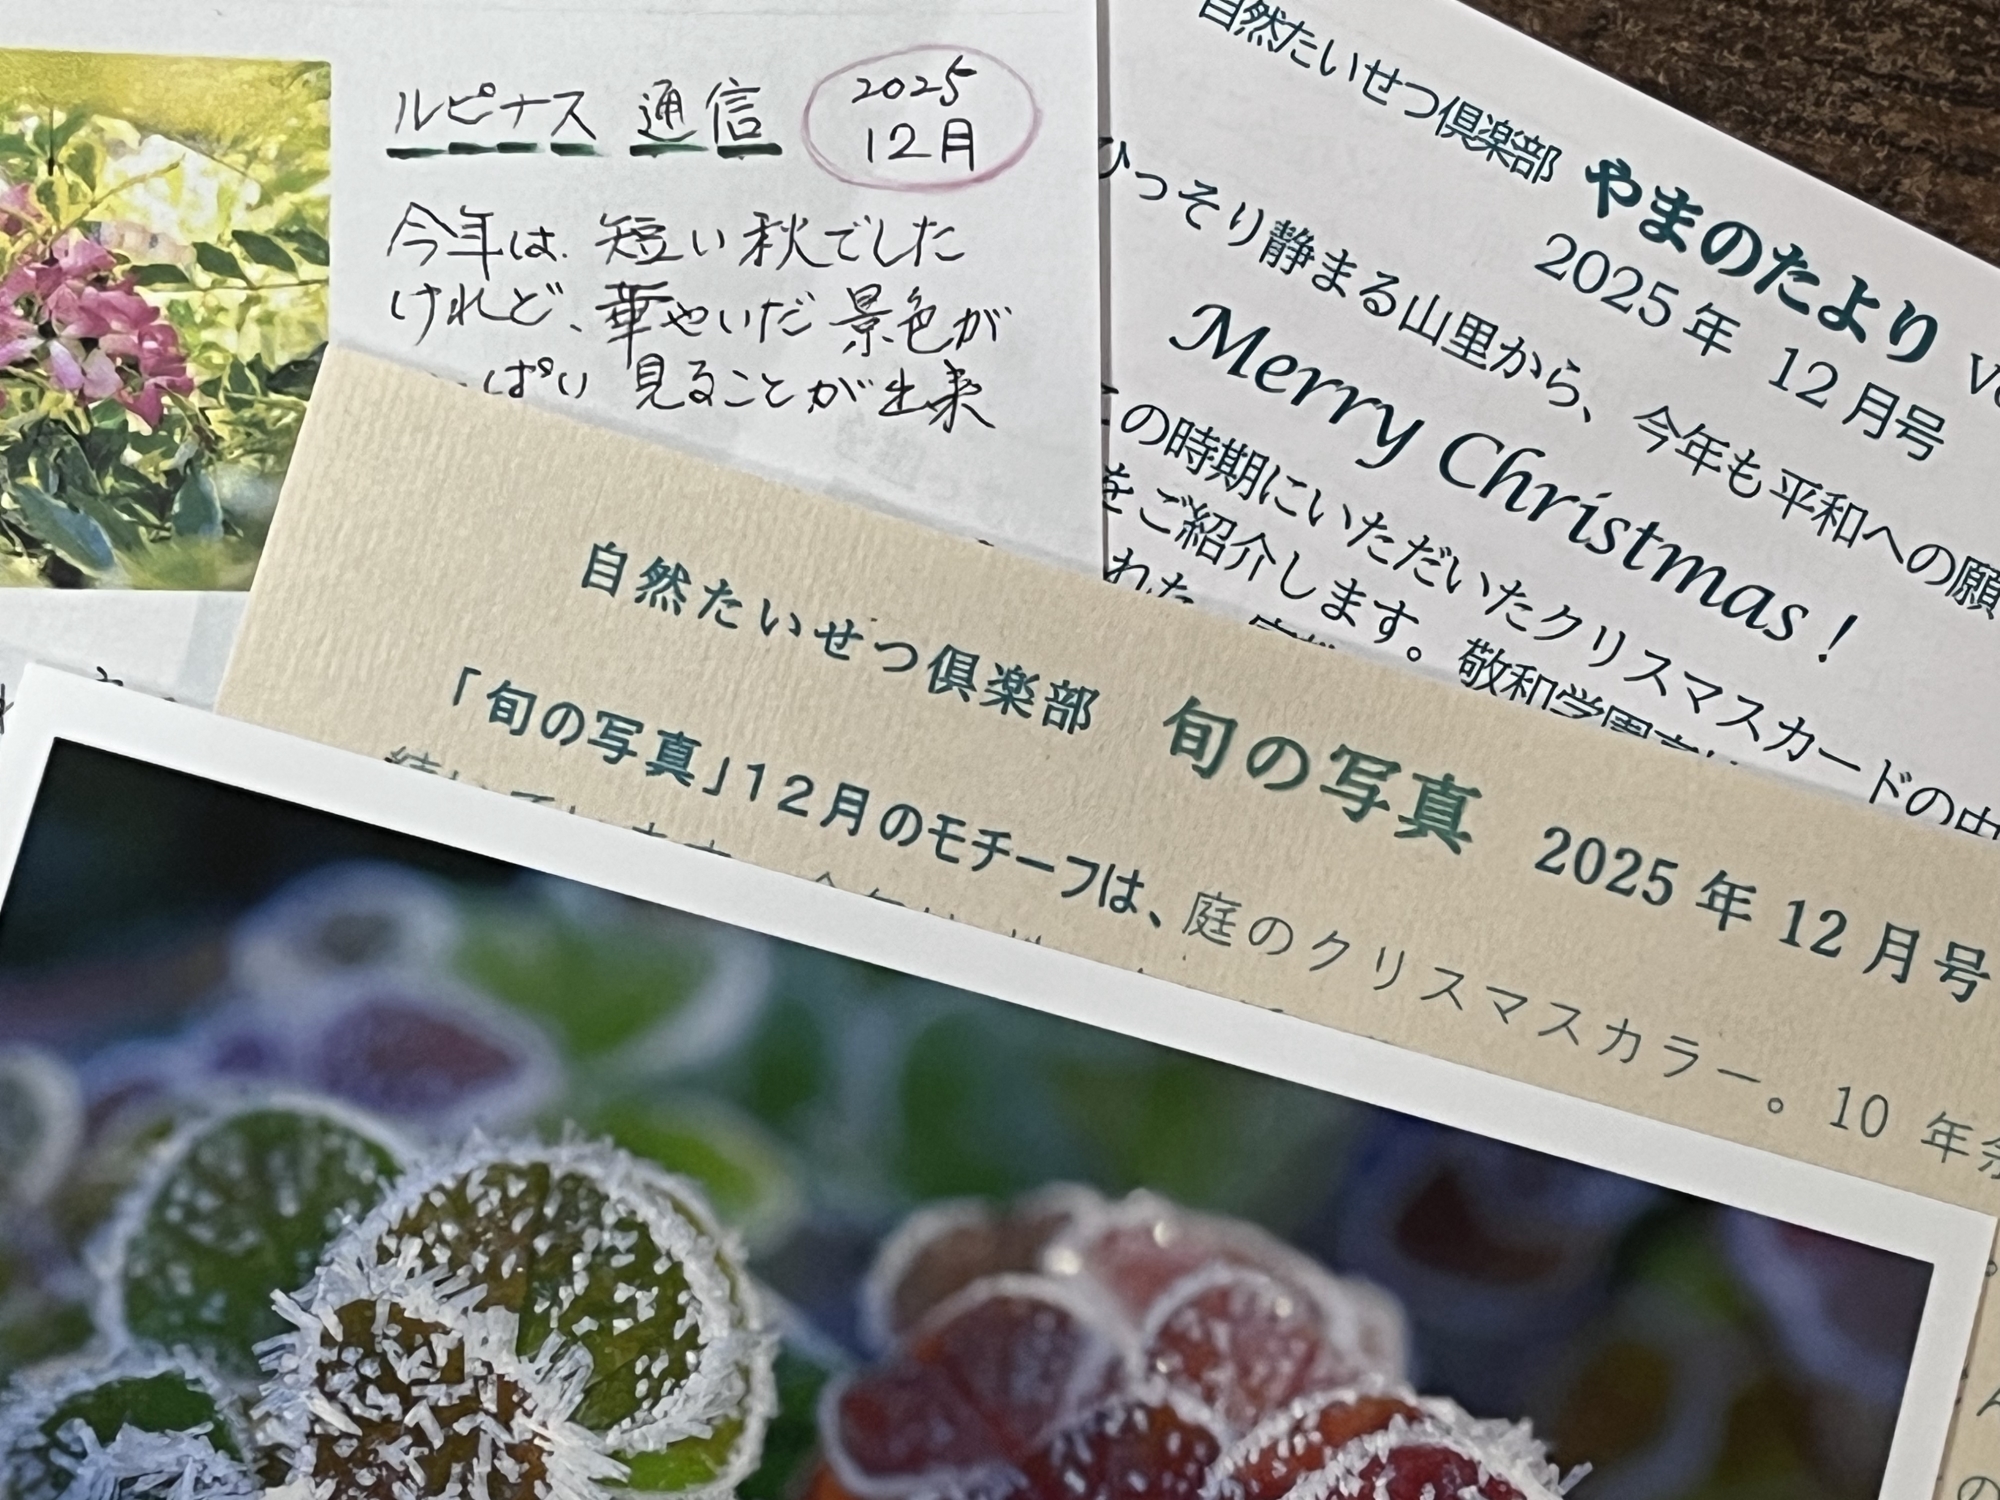 ルピナス 通信 2025 12月
今年は、短い秋でした
けれど、華やいだ景色が
ぱい 見ることが出来
自然たいせつ倶楽部 やまのたより
2025年 12月号
ひっそり静まる山里から、今年も平和への願
Merry Christmas!
の時期にいただいたクリスマスカードの中
をご紹介します。敬和学園
れた
自然たいせつ倶楽部 旬の写真 2025年12月号
「旬の写真」12月のモチーフは、庭のクリスマスカラー。10 年